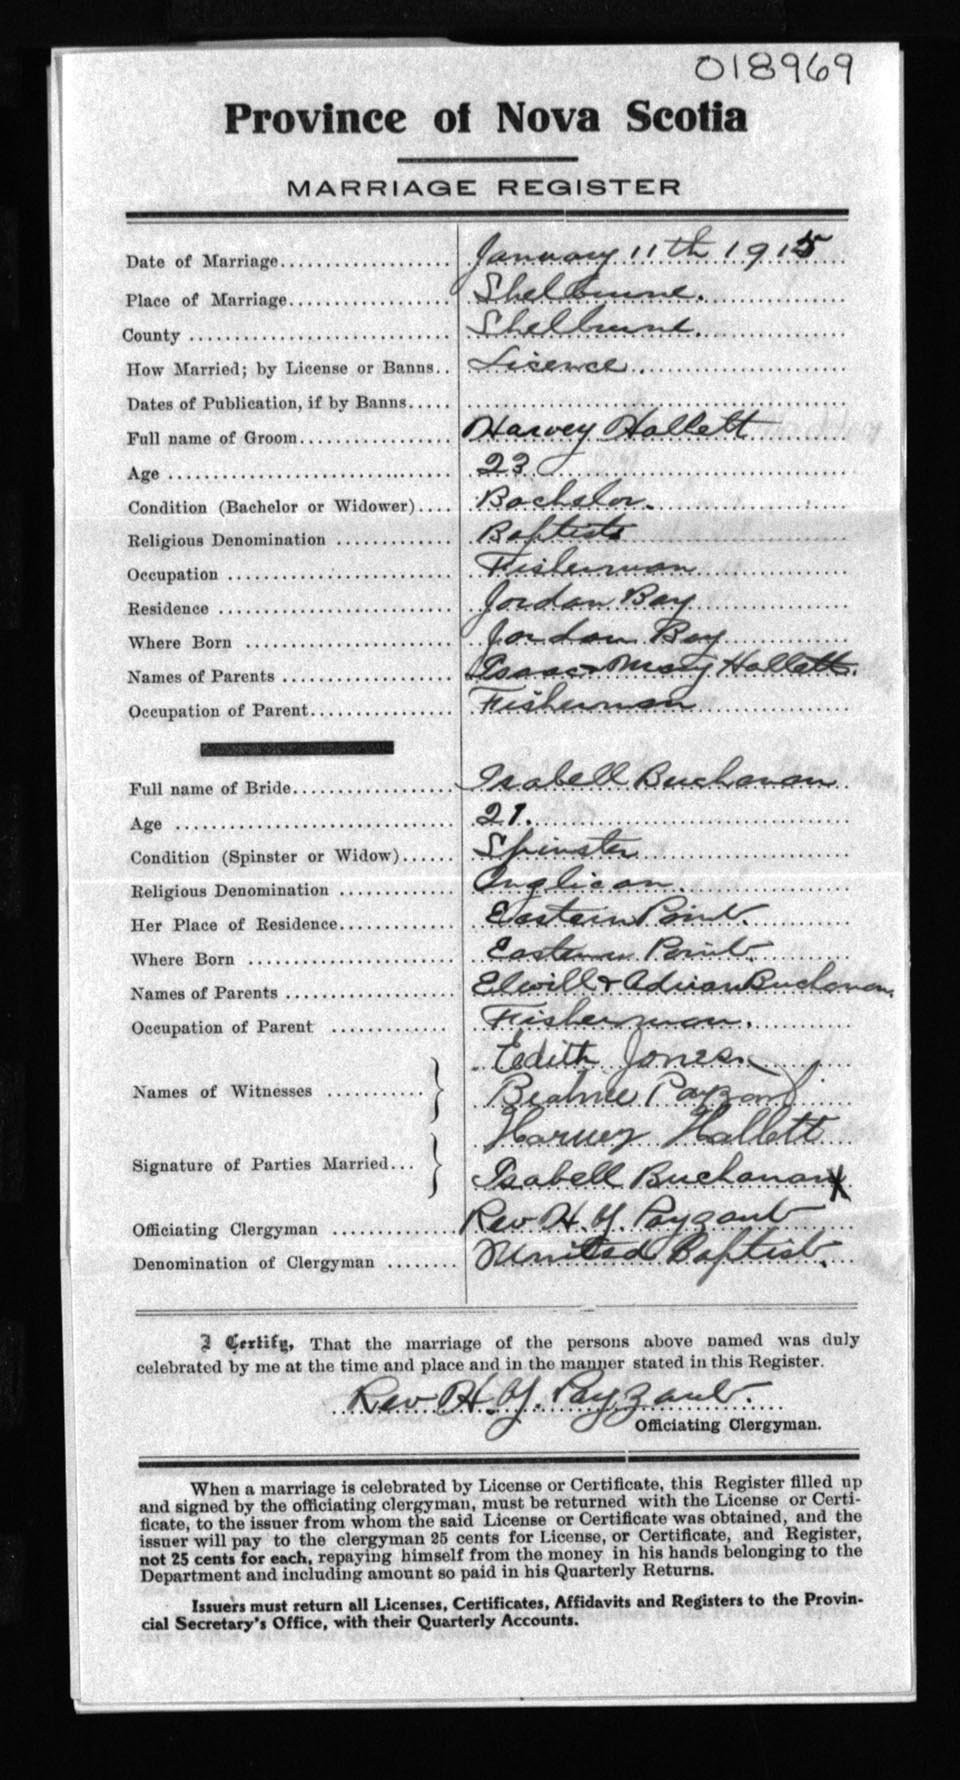 018969
Province of Nova Scotia
MARRIAGE REGISTER
Date of Marriage.................. January 11th 1915
Place of Marriage.................. Shelburne.
County .............................. Shelburne.
How Married; by License or Banns.. Lisence.
Dates of Publication, if by Banns.....
Full name of Groom................. Harvey Hallett
Age ................................ 23
Condition (Bachelor or Widower).... Bachelor.
Religious Denomination ............. Baptists
Occupation ......................... Fisherman
Residence .......................... Jordan Bay
Where Born ....................... Jordan Bay
Names of Parents ................... Isaac & Mary Hallett.
Occupation of Parent................ Fisherman
Full name of Bride.................. Isabell Buchanan
Age ................................ 21.
Condition (Spinster or Widow)...... Spinster
Religious Denomination ............. Anglican.
Her Place of Residence.............. Eastern Point.
Where Born ......................... Eastern Point.
Names of Parents ................... Elwill & Buchanan,
Occupation of Parent ............. Fisherman.
Edith Jones.
Names of Witnesses ............ } Payzant
Harvey Hallett
Signature of Parties Married... } Isabell Buchanan X
Officiating Clergyman .............. Rev H. Y. Payzant
Denomination of Clergyman ........ United Baptist.
I Certify, That the marriage of the persons above named was duly
celebrated by me at the time and place and in the manner stated in this Register.
Rev H. Y. Payzant.
Officiating Clergyman.
When a marriage is celebrated by License or Certificate, this Register filled up
and signed by the officiating clergyman, must be returned with the License or Certi-
ficate, to the issuer from whom the said License or Certificate was obtained, and the
issuer will pay to the clergyman 25 cents for License, or Certificate, and Register,
not 25 cents for each, repaying himself from the money in his hands belonging to the
Department and including amount so paid in his Quarterly Returns.
Issuers must return all Licenses, Certificates, Affidavits and Registers to the Provin-
cial Secretary's Office, with their Quarterly Accounts.